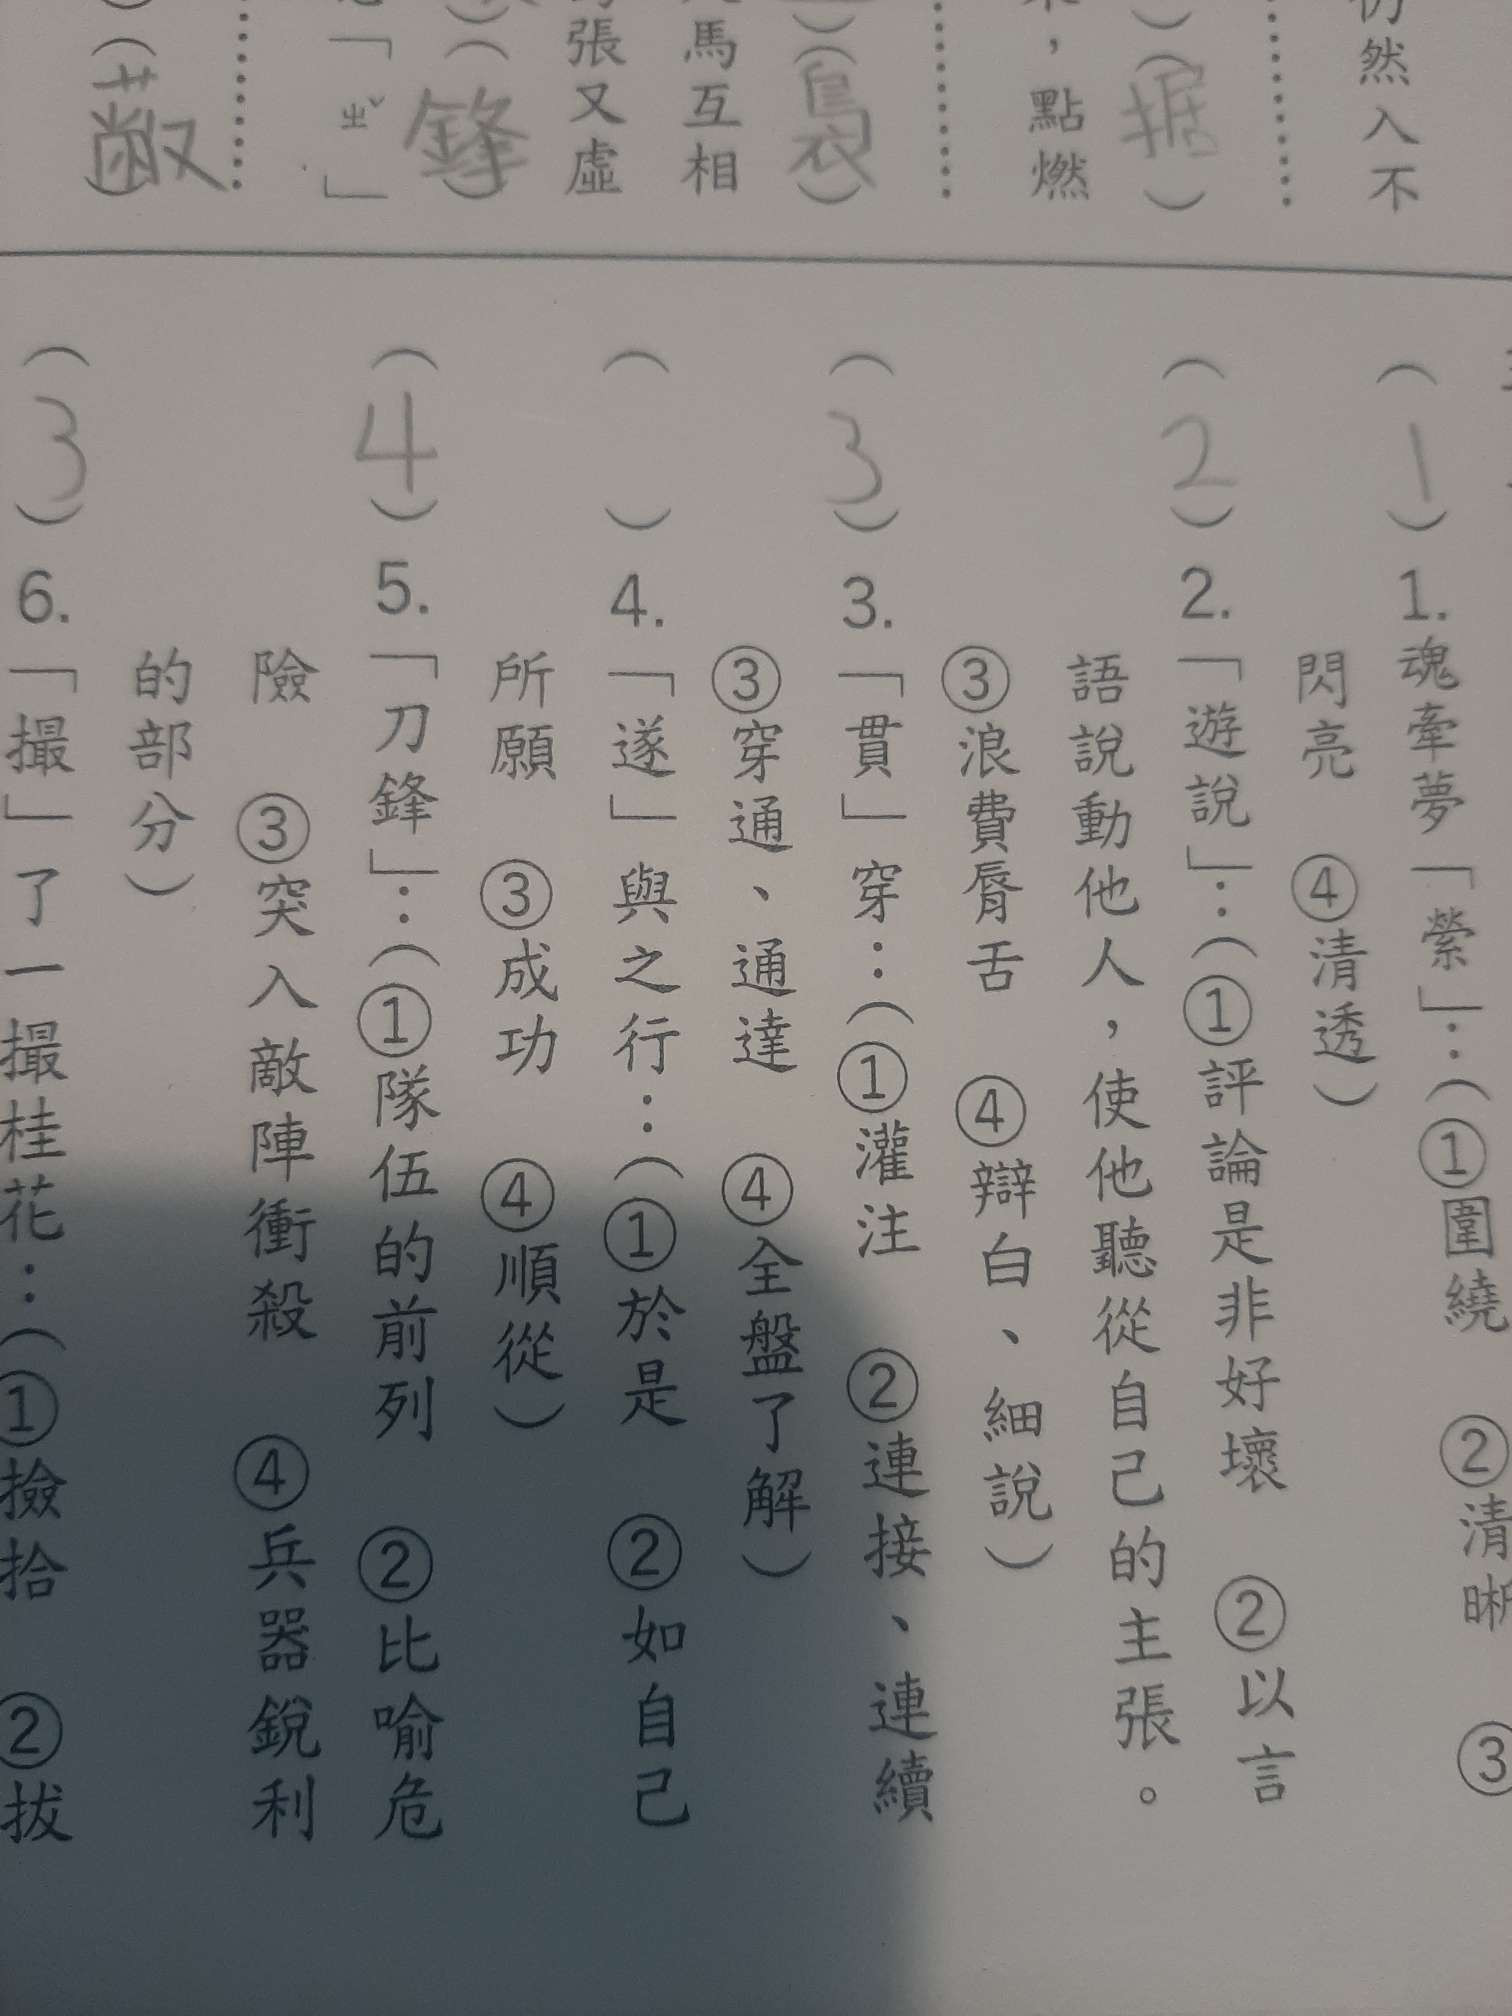 仍然入不
)(据)
,點燃
)(裊)
馬互相
張又虛
)(鋒)
「ㄓˇ」
(蔽)
(1)1.魂牽夢「縈」:(①圍繞 ②清晰 ③
閃亮 ④清透)
(2)2.「遊說」:(①評論是非好壞 ②以言
語說動他人,使他聽從自己的主張。
③浪費脣舌 ④辯白、細說)
(3)3.「貫」穿:(①灌注 ②連接、連續
③穿通、通達 ④全盤了解)
( )4.「遂」與之行:(①於是 ②如自己
所願 ③成功 ④順從)
(4)5.「刀鋒」:(①隊伍的前列 ②比喻危
險 ③突入敵陣衝殺 ④兵器銳利
的部分)
(3)6.「撮」了一撮桂花:(①撿拾 ②拔